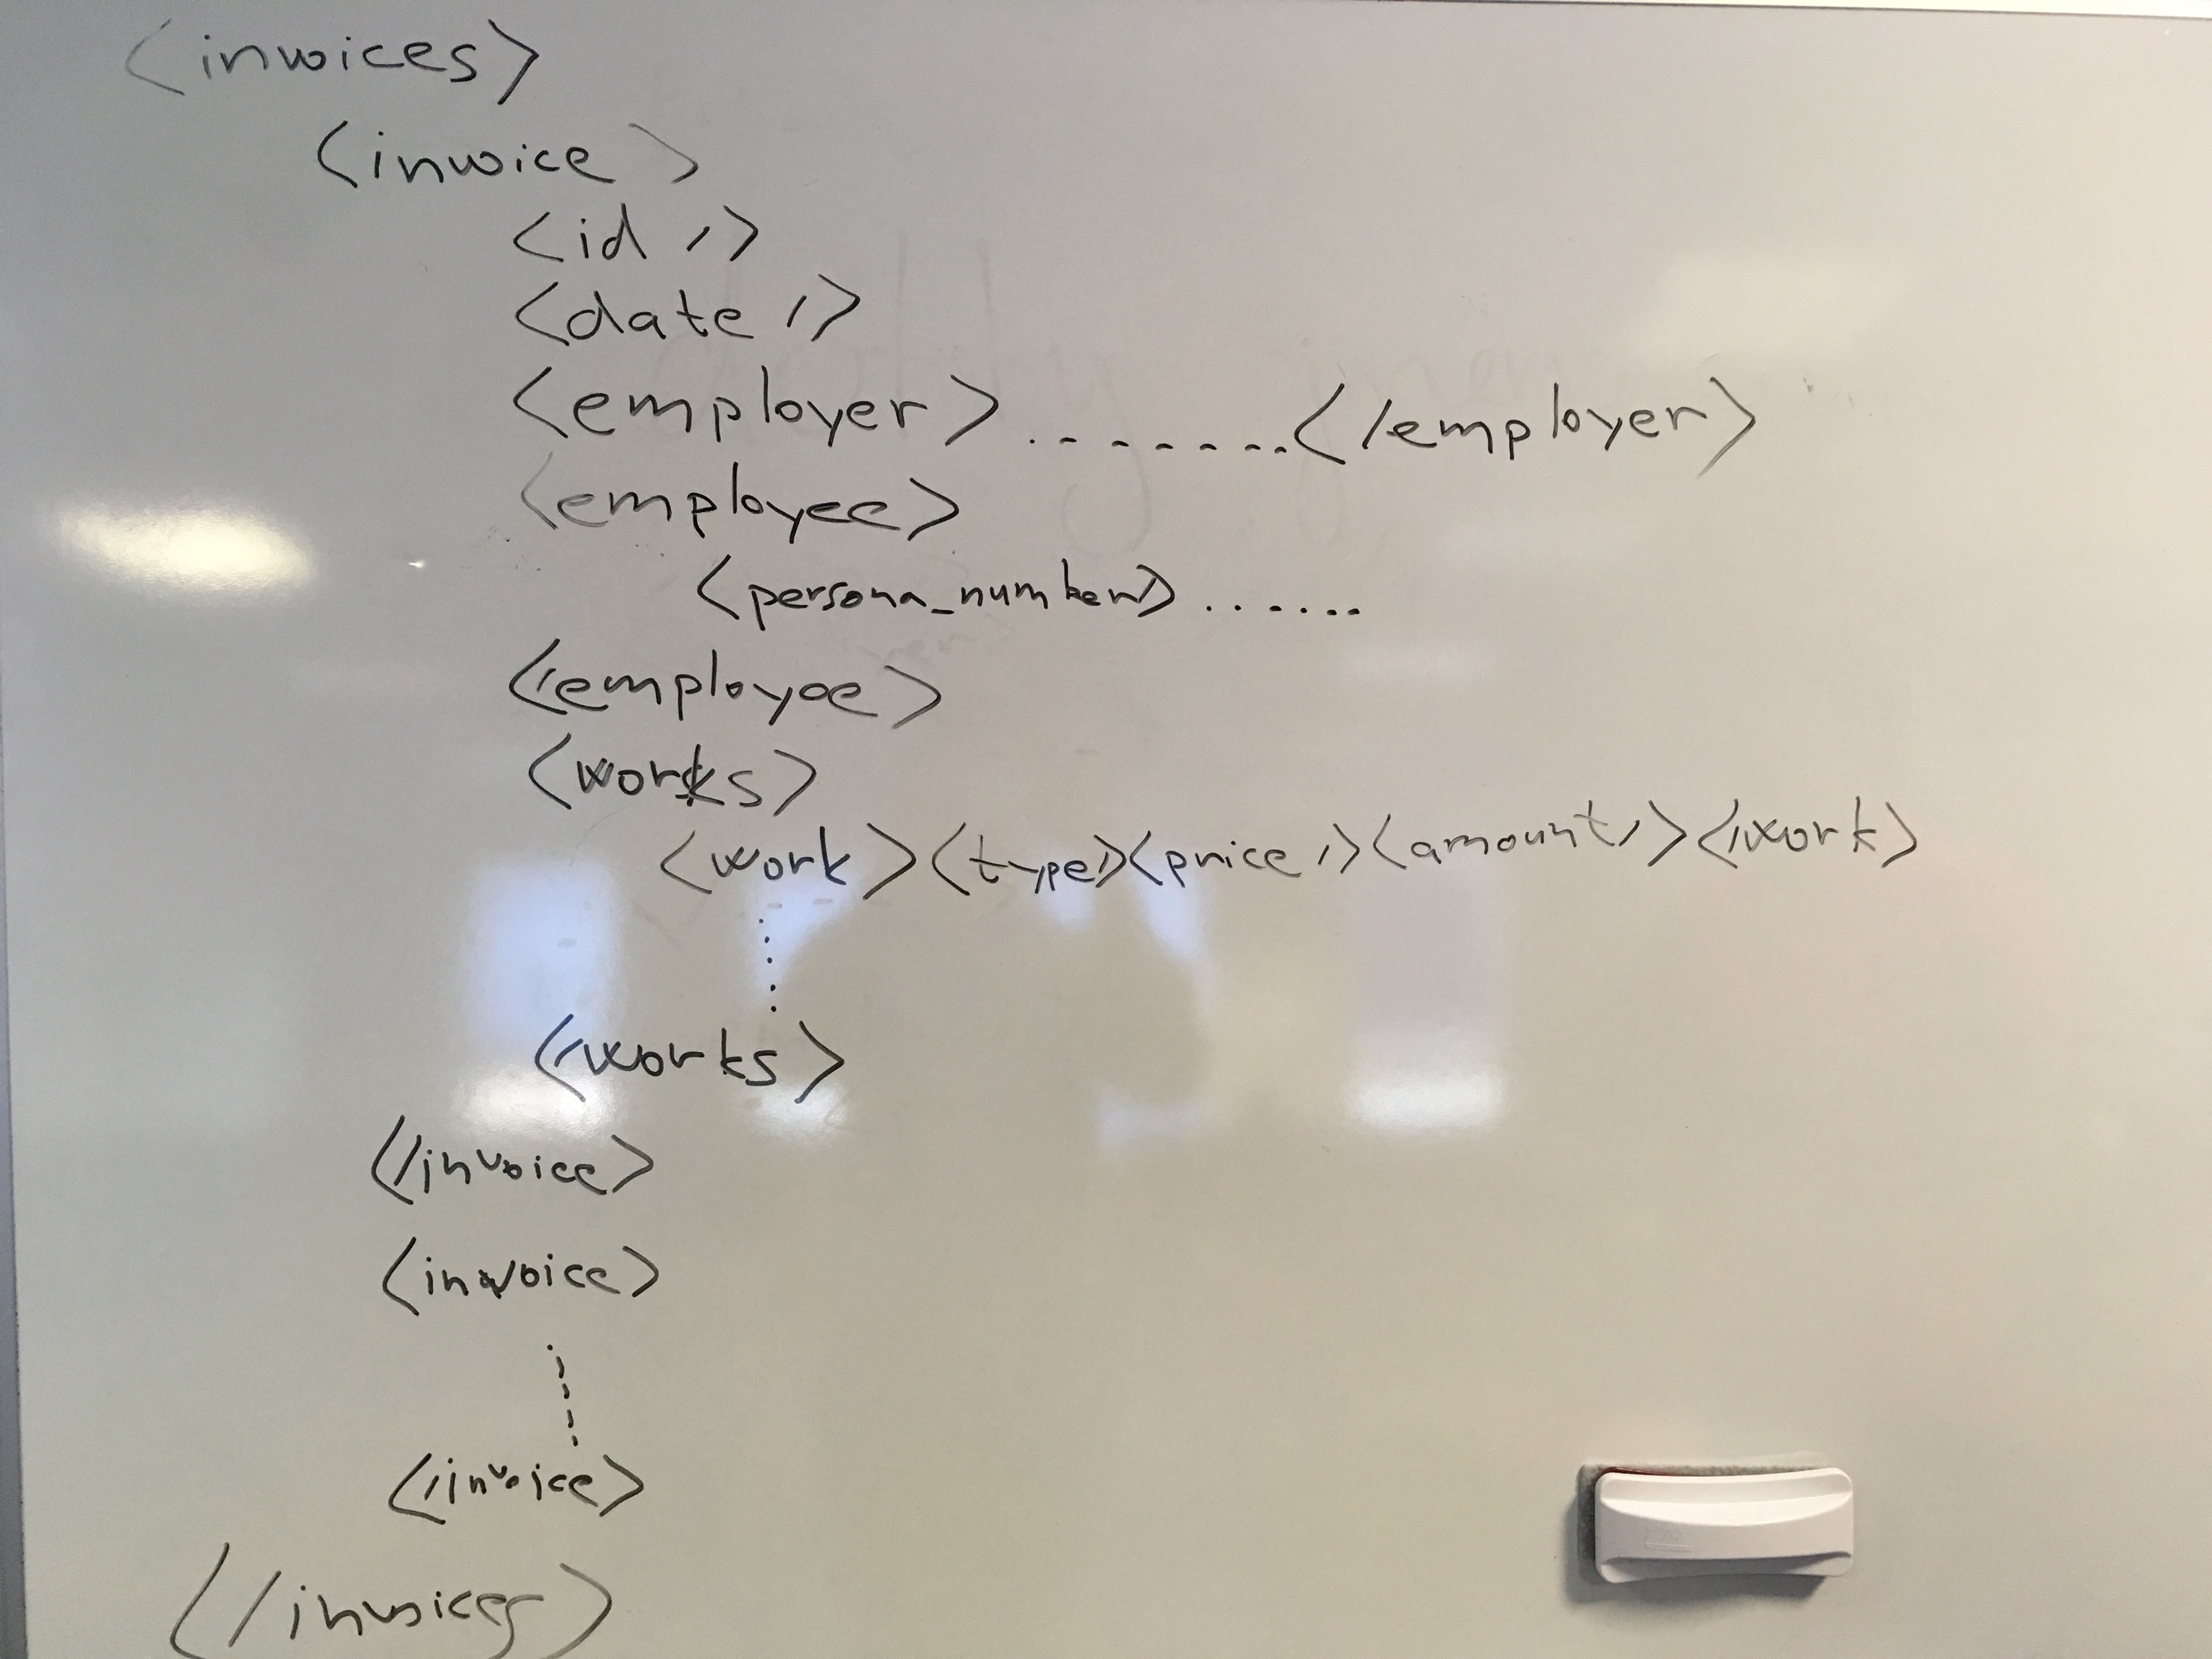 <invoices>
<invoice>
<id />
<date />
<employer> ........ </employer>
<employee>
<persona_number/> .......
</employee>
<works>
<work><type/><price /><amount /></work>
.....
</works>
</invoice>
<invoice>
.....
</invoice>
</invoices>